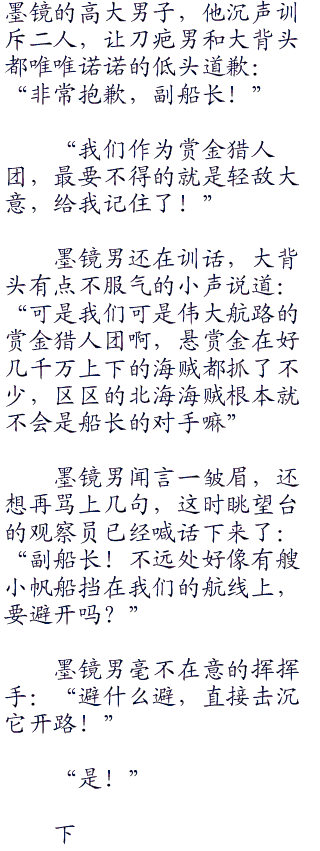 墨镜的高大男子，他沉声训
斥二人，让刀疤男和大背头
都唯唯诺诺的低头道歉：
“非常抱歉，副船长！”
“我们作为赏金猎人
团，最要不得的就是轻敌大
意，给我记住了！”
墨镜男还在训话，大背
头有点不服气的小声说道：
“可是我们可是伟大航路的
赏金猎人团啊，悬赏金在好
几千万上下的海贼都抓了不
少，区区的北海海贼根本就
不会是船长的对手嘛”
墨镜男闻言一皱眉，还
想再骂上几句，这时眺望台
的观察员已经喊话下来了：
“副船长！不远处好像有艘
小帆船挡在我们的航线上，
要避开吗？”
墨镜男毫不在意的挥挥
手：“避什么避，直接击沉
它开路！”
“是！”
下